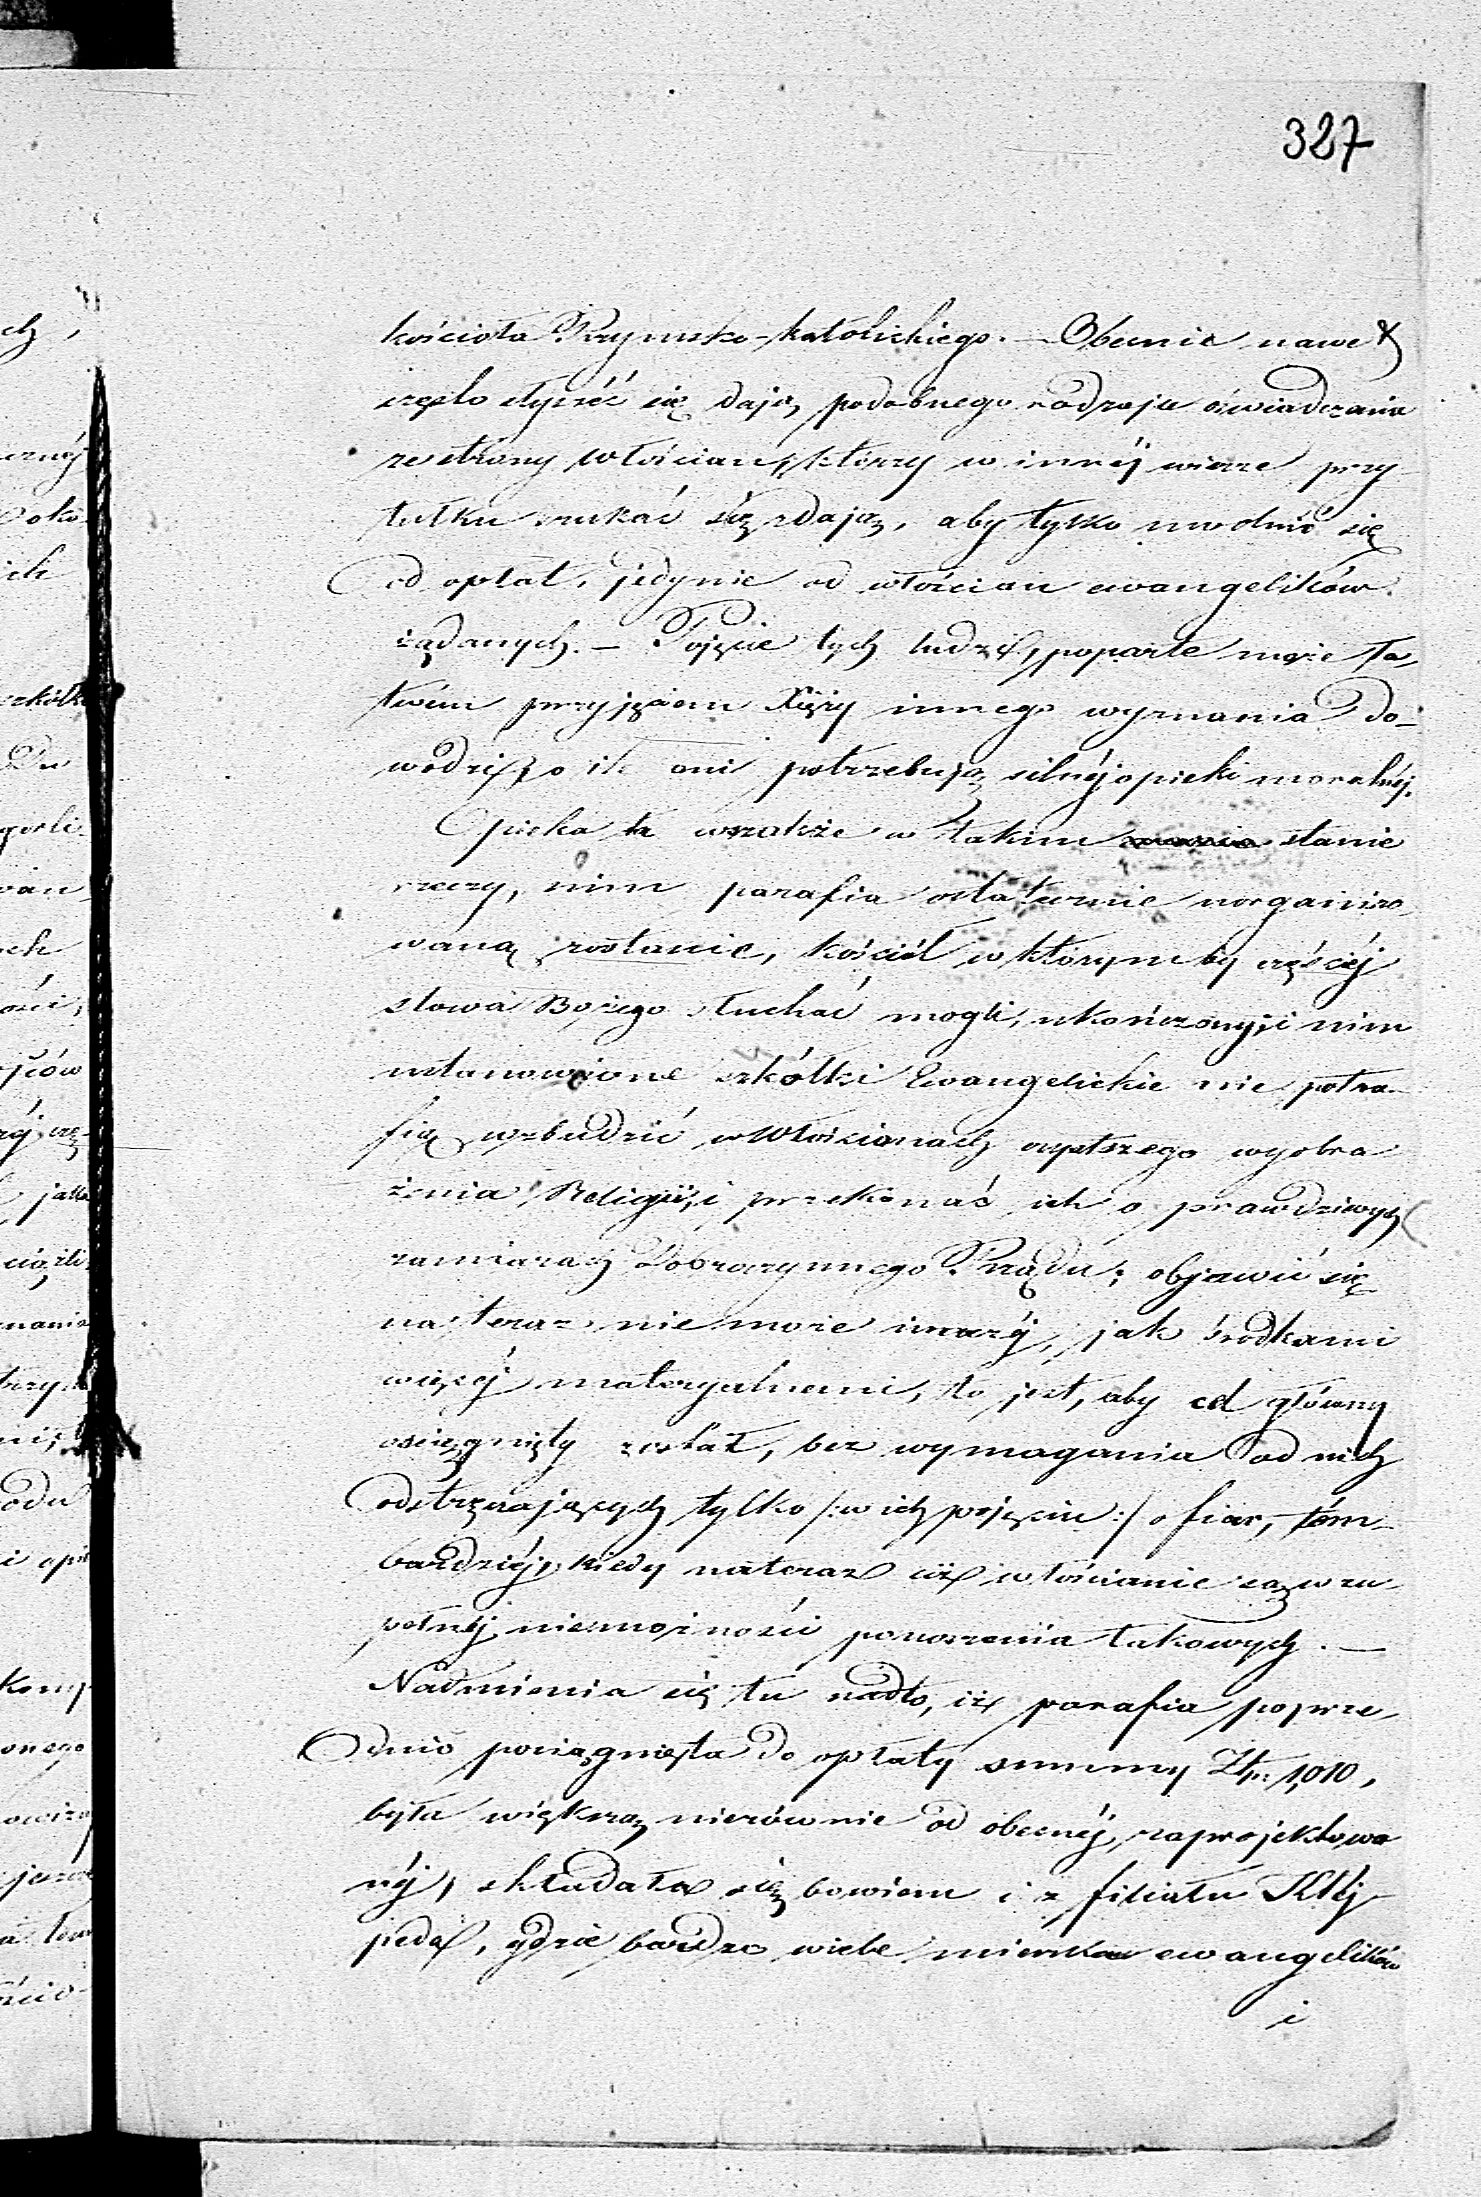 327
kościoła Rzymsko-katolickiego. — Obecnie nawet
często słyszéć się dają podobnego rodzaju oświadczenia
ze strony włościan, którzy w innéj wierze przy
tułku szukać się zdają, aby tylko uwolnić się
od opłat, jedynie od włościan ewangelików
żądanych. — Pojęcie tych ludzi, poparte może ła
twém przyjęciem Xięży innego wyznania do-
wodzi, o ile oni potrzebują silnéj opieki moralnéj.
Opieka ta wszakże w takim stanie
rzeczy, nim parafia ostatecznie uorganizo
waną zostanie, kościół w którym by częściéj
słowa Bożego słuchać mogli, ukończony, i nim
ustanowione szkółki Ewangelickie nie potra-
fią wzbudzić w Włościanach czystszego wyobra
żenia Religii, i przekonać ich o prawdziwych
zamiarach Dobroczynnego Rządu; objawić się
na teraz nie może inaczéj, jak środkami
więcéj materyalnemi, to jest, aby cel główny
osiągnięty został, bez wymagania od nich
odstręczających tylko /: w ich pojęciu :/ ofiar, tém-
bardziéj, kiedy na teraz ciż włościanie są w zu-
pełnéj niemożności ponoszenia takowych. —
Nadmienia się tu nadto, iż parafia poprze-
dnio pociągnięta do opłaty summy Złp. 1,010,
była większą nierównie od obecnéj, zaprojektowa
néj, składała się bowiem i z filiału Kłéj
pedą, gdzie bardzo wiele mieszka ewangelików
i